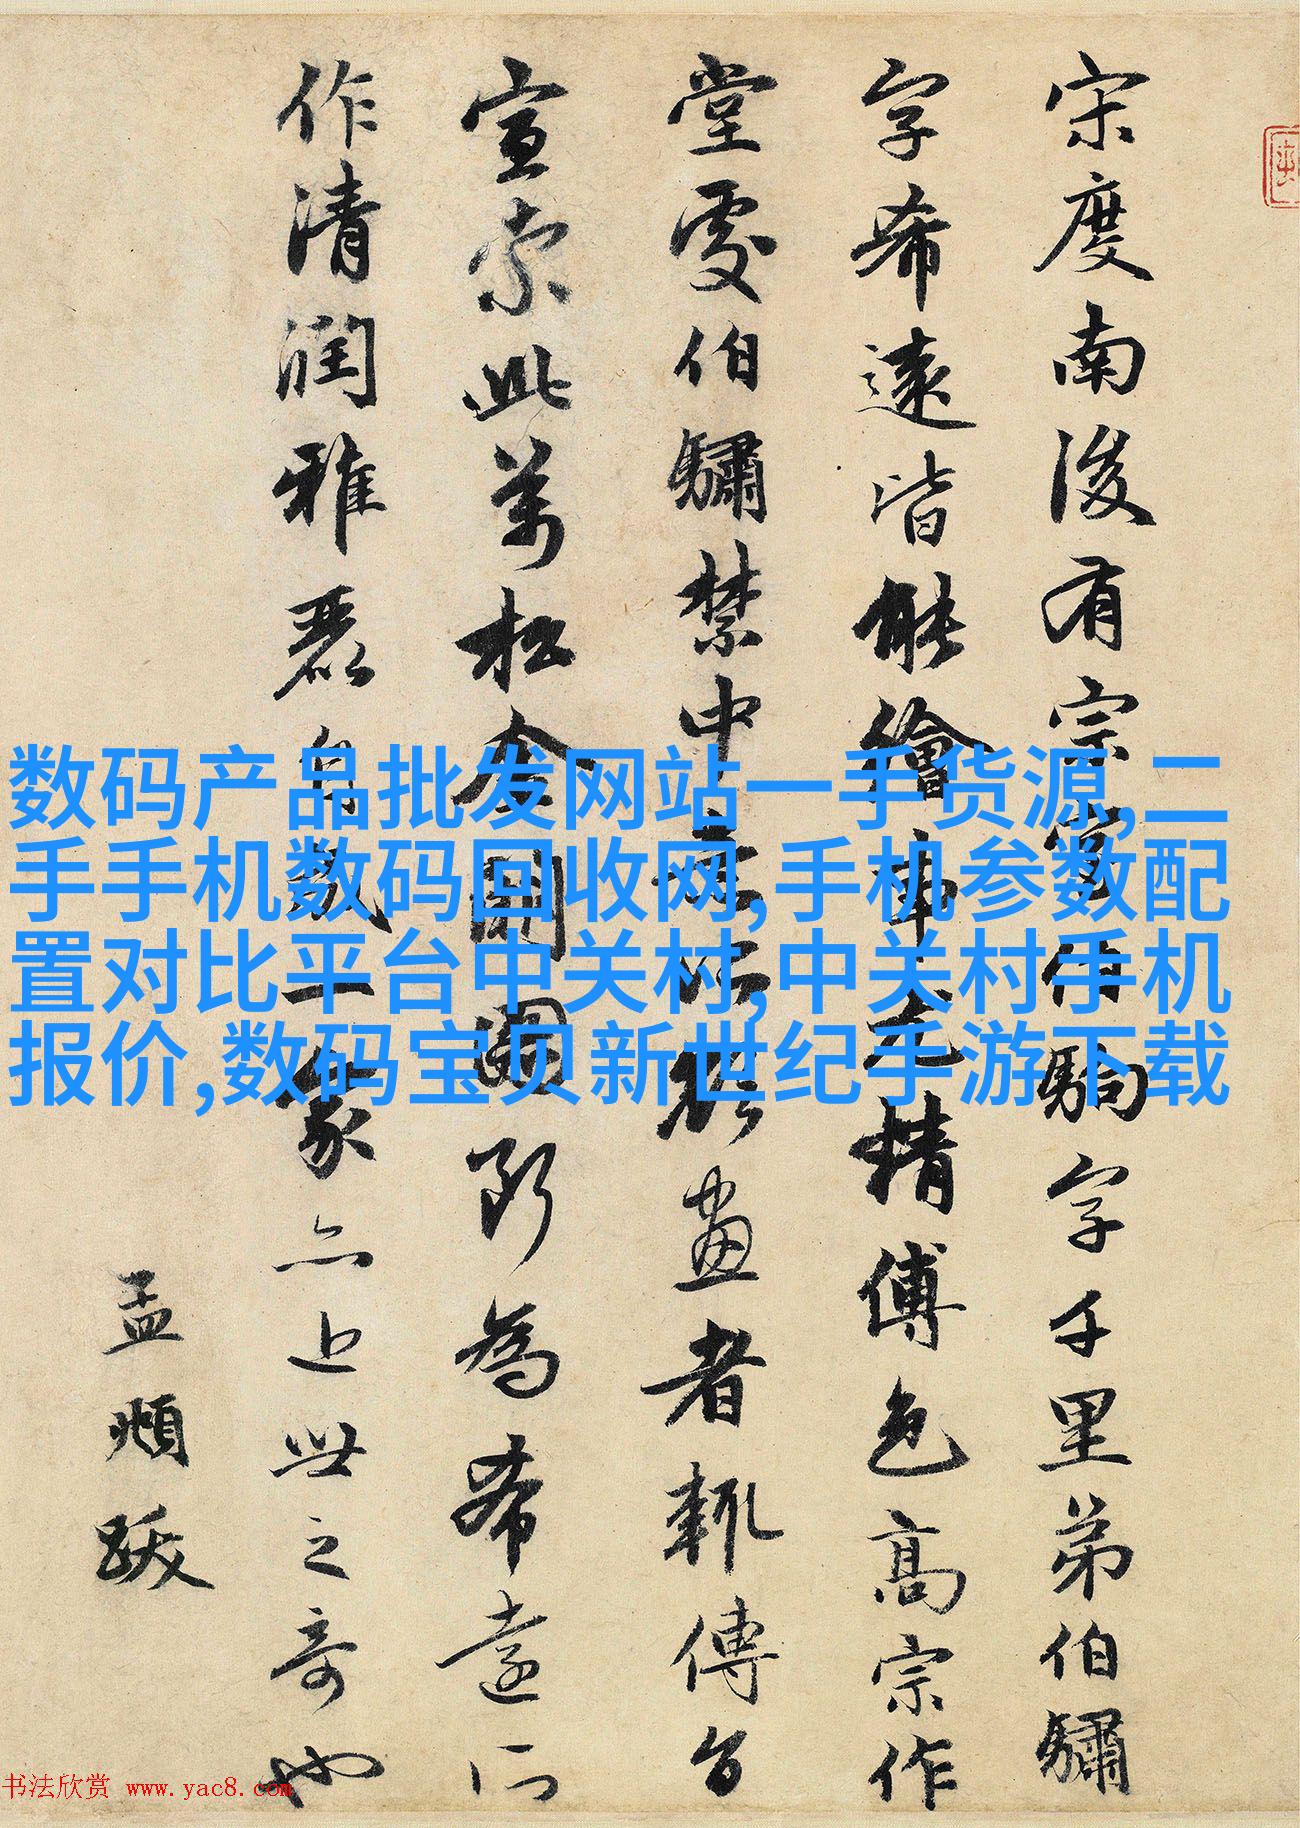 宋度南後有宗室伯駒字千里弟伯驌
字希遠皆能繪事尤精傅色高宗作
堂處伯驌禁中畫者輒傳旨
宣索此萬松金闕圖斷為希遠所
作清潤雅麗自成一家亦近世之奇也
孟頫跋
数码产品批发网站一手货源,二
手手机数码回收网,手机参数配
置对比平台中关村,中关村手机
报价,数码宝贝新世纪手游下载
书法欣赏 www.yac8.com